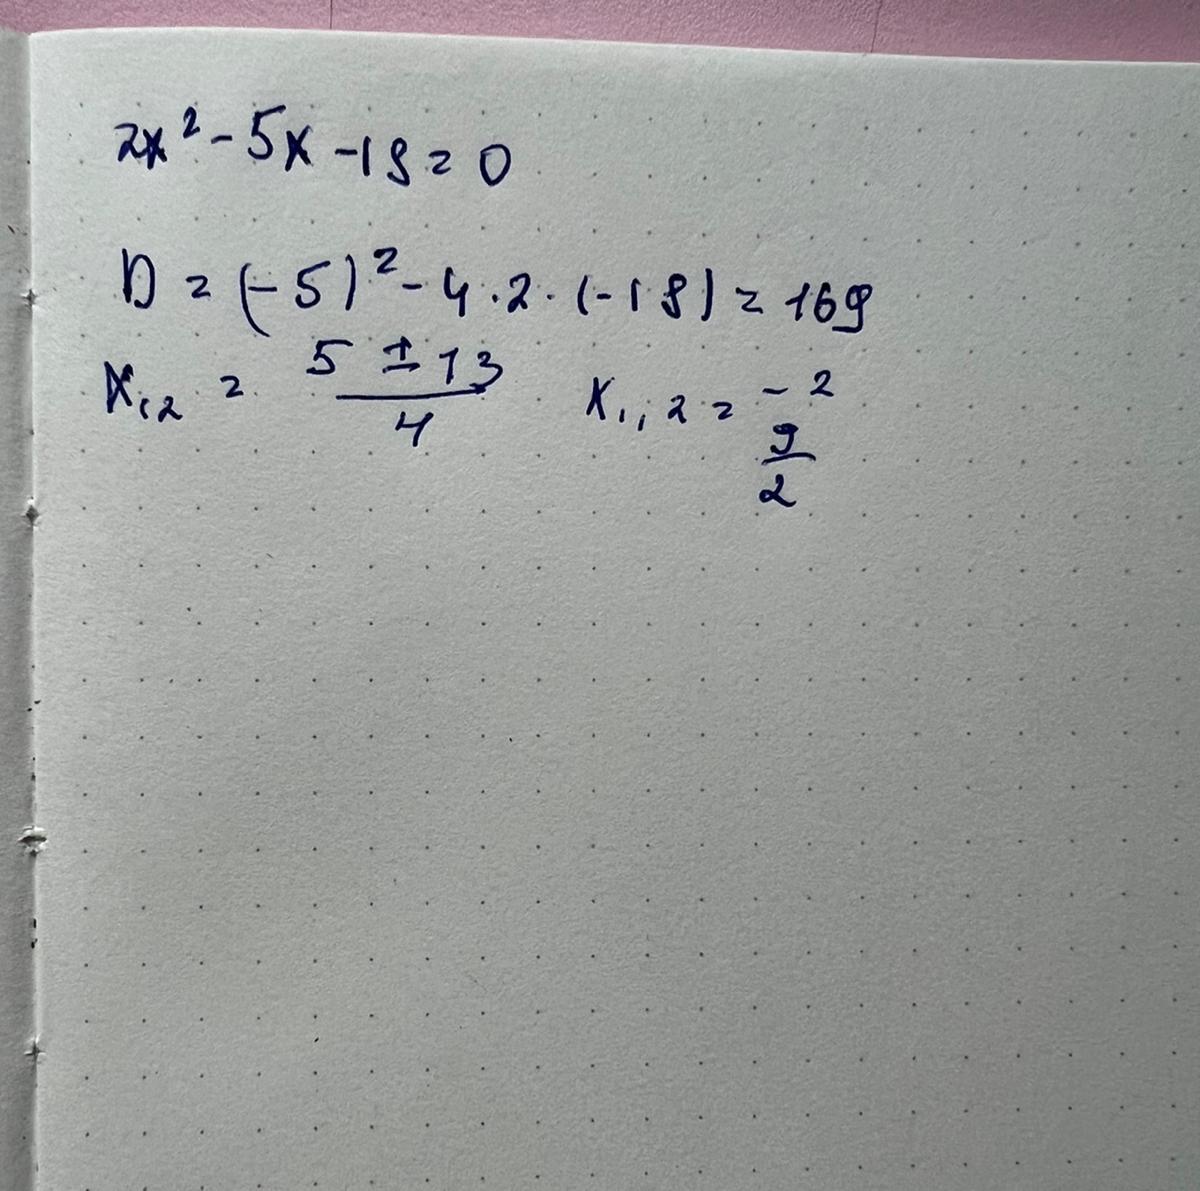 2x² - 5x - 18 = 0
D = (-5)² - 4 · 2 · (-18) = 169
x₁,₂ = 5 ± 13 / 4 x₁,₂ = -2
9/2